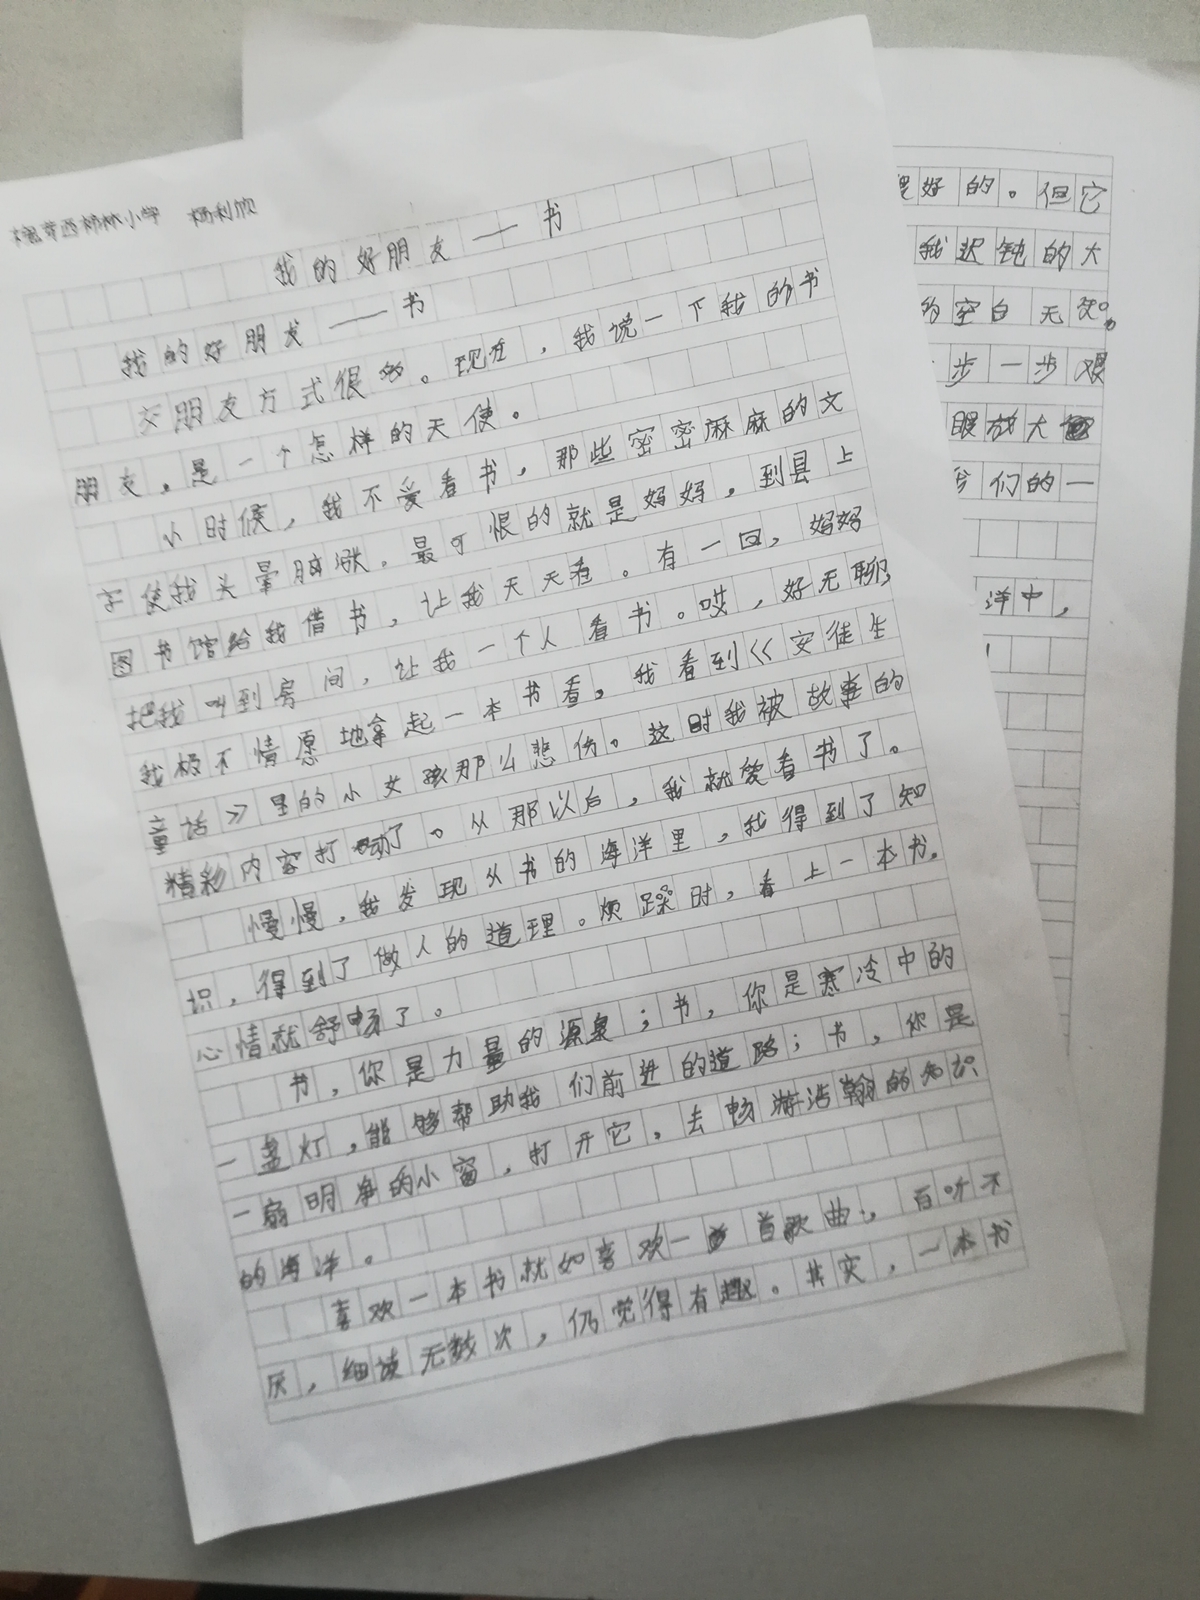 槐芽西柿林小学 杨利欣
我的好朋友——书
我的好朋友——书
交朋友方式很多。现在,我说一下我的书
朋友,是一个怎样的天使。
小时候,我不爱看书,那些密密麻麻的文
字使我头晕脑涨。最可恨的就是妈妈,到县上
图书馆给我借书,让我天天看。有一回,妈妈
把我叫到房间,让我一个人看书。哎,好无聊
我极不情愿地拿起一本书看,我看到《安徒生
童话》里的小女孩那么悲伤。这时我被故事的
精彩内容打动了。从那以后,我就爱看书了。
慢慢,我发现从书的海洋里,我得到了知
识,得到了做人的道理。烦躁时,看上一本书,
心情就舒畅了。
书,你是力量的源泉;书,你是寒冷中的
一盏灯,能够帮助我们前进的道路;书,你是
一扇明净的小窗,打开它,去畅游浩瀚的知识
的海洋。
喜欢一本书就如喜欢一首歌曲,百听不
厌,细读无数次,仍觉得有趣。其实,一本书
好的。但它
我迟钝的大
的空白无知。
步一步艰
眼放大
们的一
洋中,